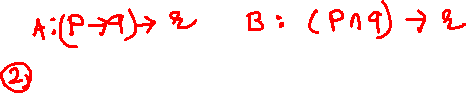 A:(P→q)→r B: (P∩q)→r
②